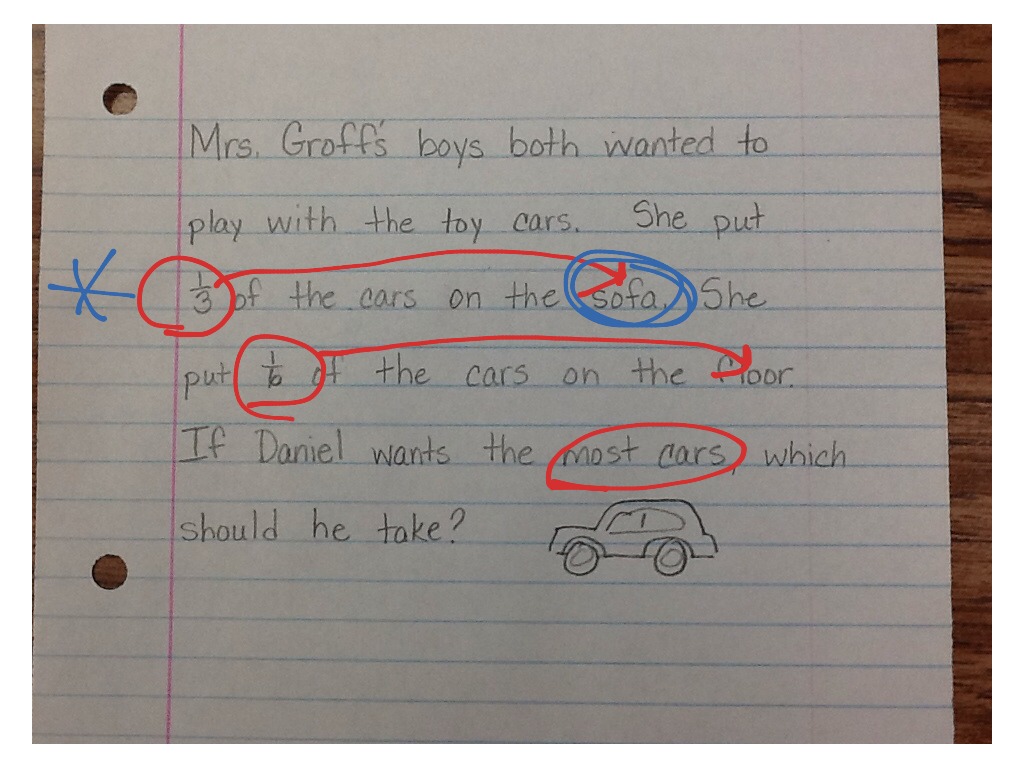 Mrs. Groff's boys both wanted to
play with the toy cars. She put
1/3 of the cars on the sofa. She
put 1/6 of the cars on the floor.
If Daniel wants the most cars, which
should he take?